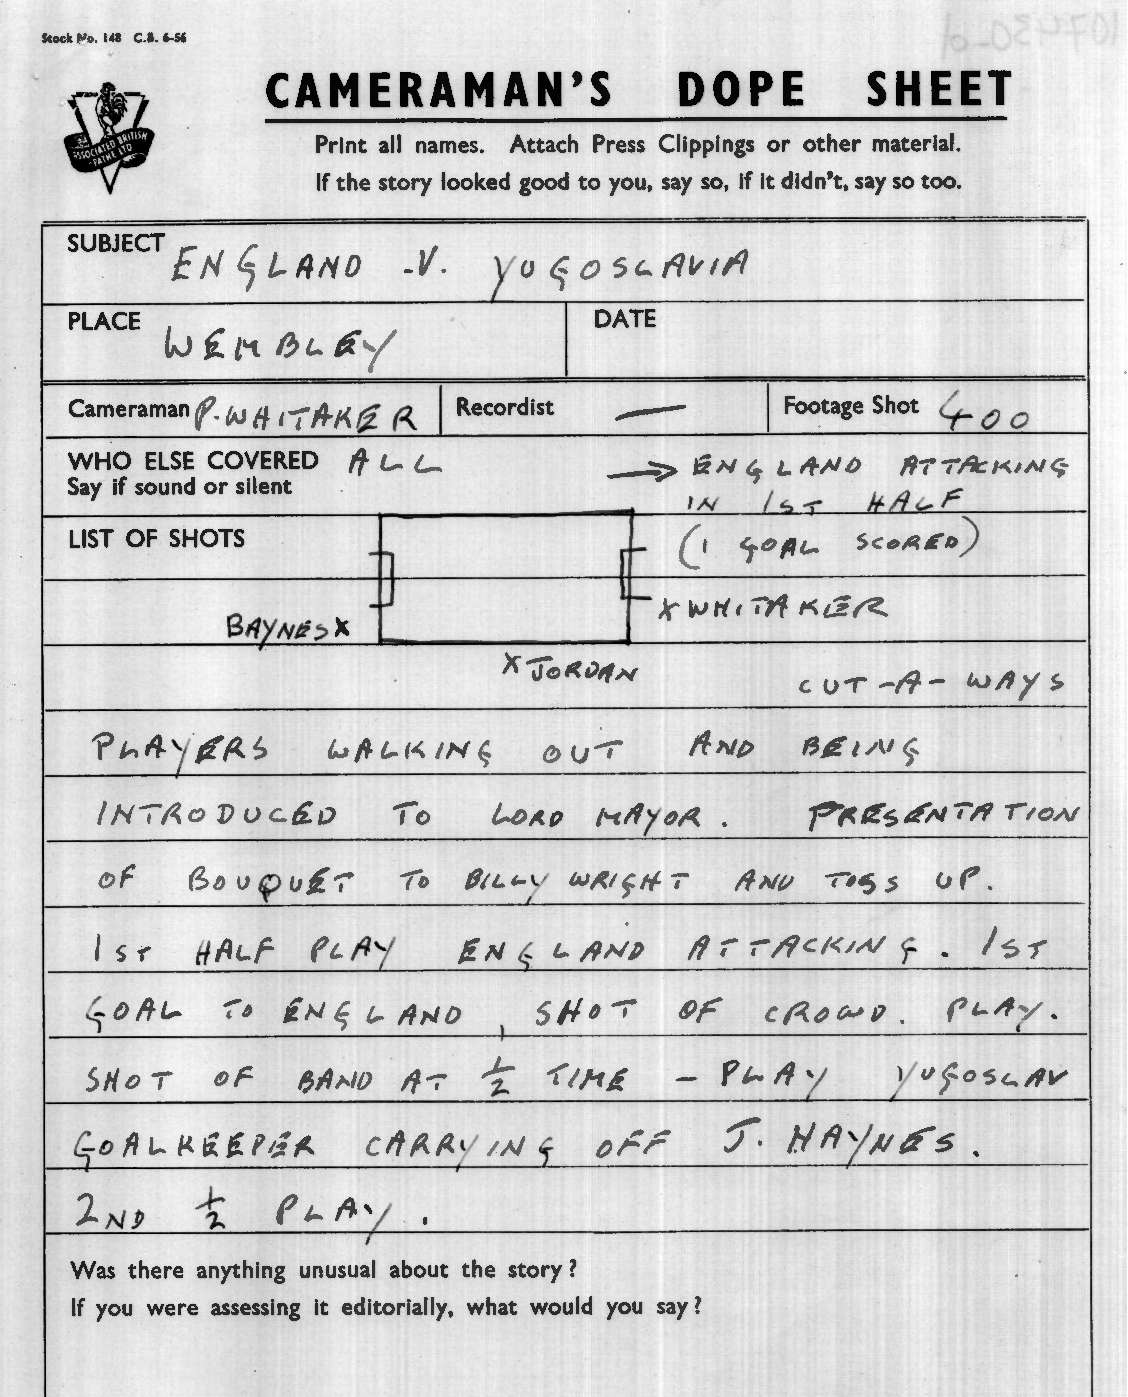 Stock No. 148 C.B. 6-56
CAMERAMAN'S DOPE SHEET
ASSOCIATED BRITISH
PATHE LTD
Print all names. Attach Press Clippings or other material.
If the story looked good to you, say so, if it didn't, say so too.
SUBJECT ENGLAND -V. YUGOSLAVIA
PLACE WEMBLEY DATE
Cameraman P. WHITAKER Recordist — Footage Shot 400
WHO ELSE COVERED ALL → ENGLAND ATTACKING
Say if sound or silent IN 1ST HALF
LIST OF SHOTS (1 GOAL SCORED)
BAYNES X X WHITAKER
X JORDAN CUT-A-WAYS
PLAYERS WALKING OUT AND BEING
INTRODUCED TO LORD MAYOR. PRESENTATION
OF BOUQUET TO BILLY WRIGHT AND TOSS UP.
1ST HALF PLAY ENGLAND ATTACKING. 1ST
GOAL TO ENGLAND, SHOT OF CROWD. PLAY.
SHOT OF BAND AT ½ TIME - PLAY YUGOSLAV
GOALKEEPER CARRYING OFF J. HAYNES.
2ND ½ PLAY.
Was there anything unusual about the story?
If you were assessing it editorially, what would you say?